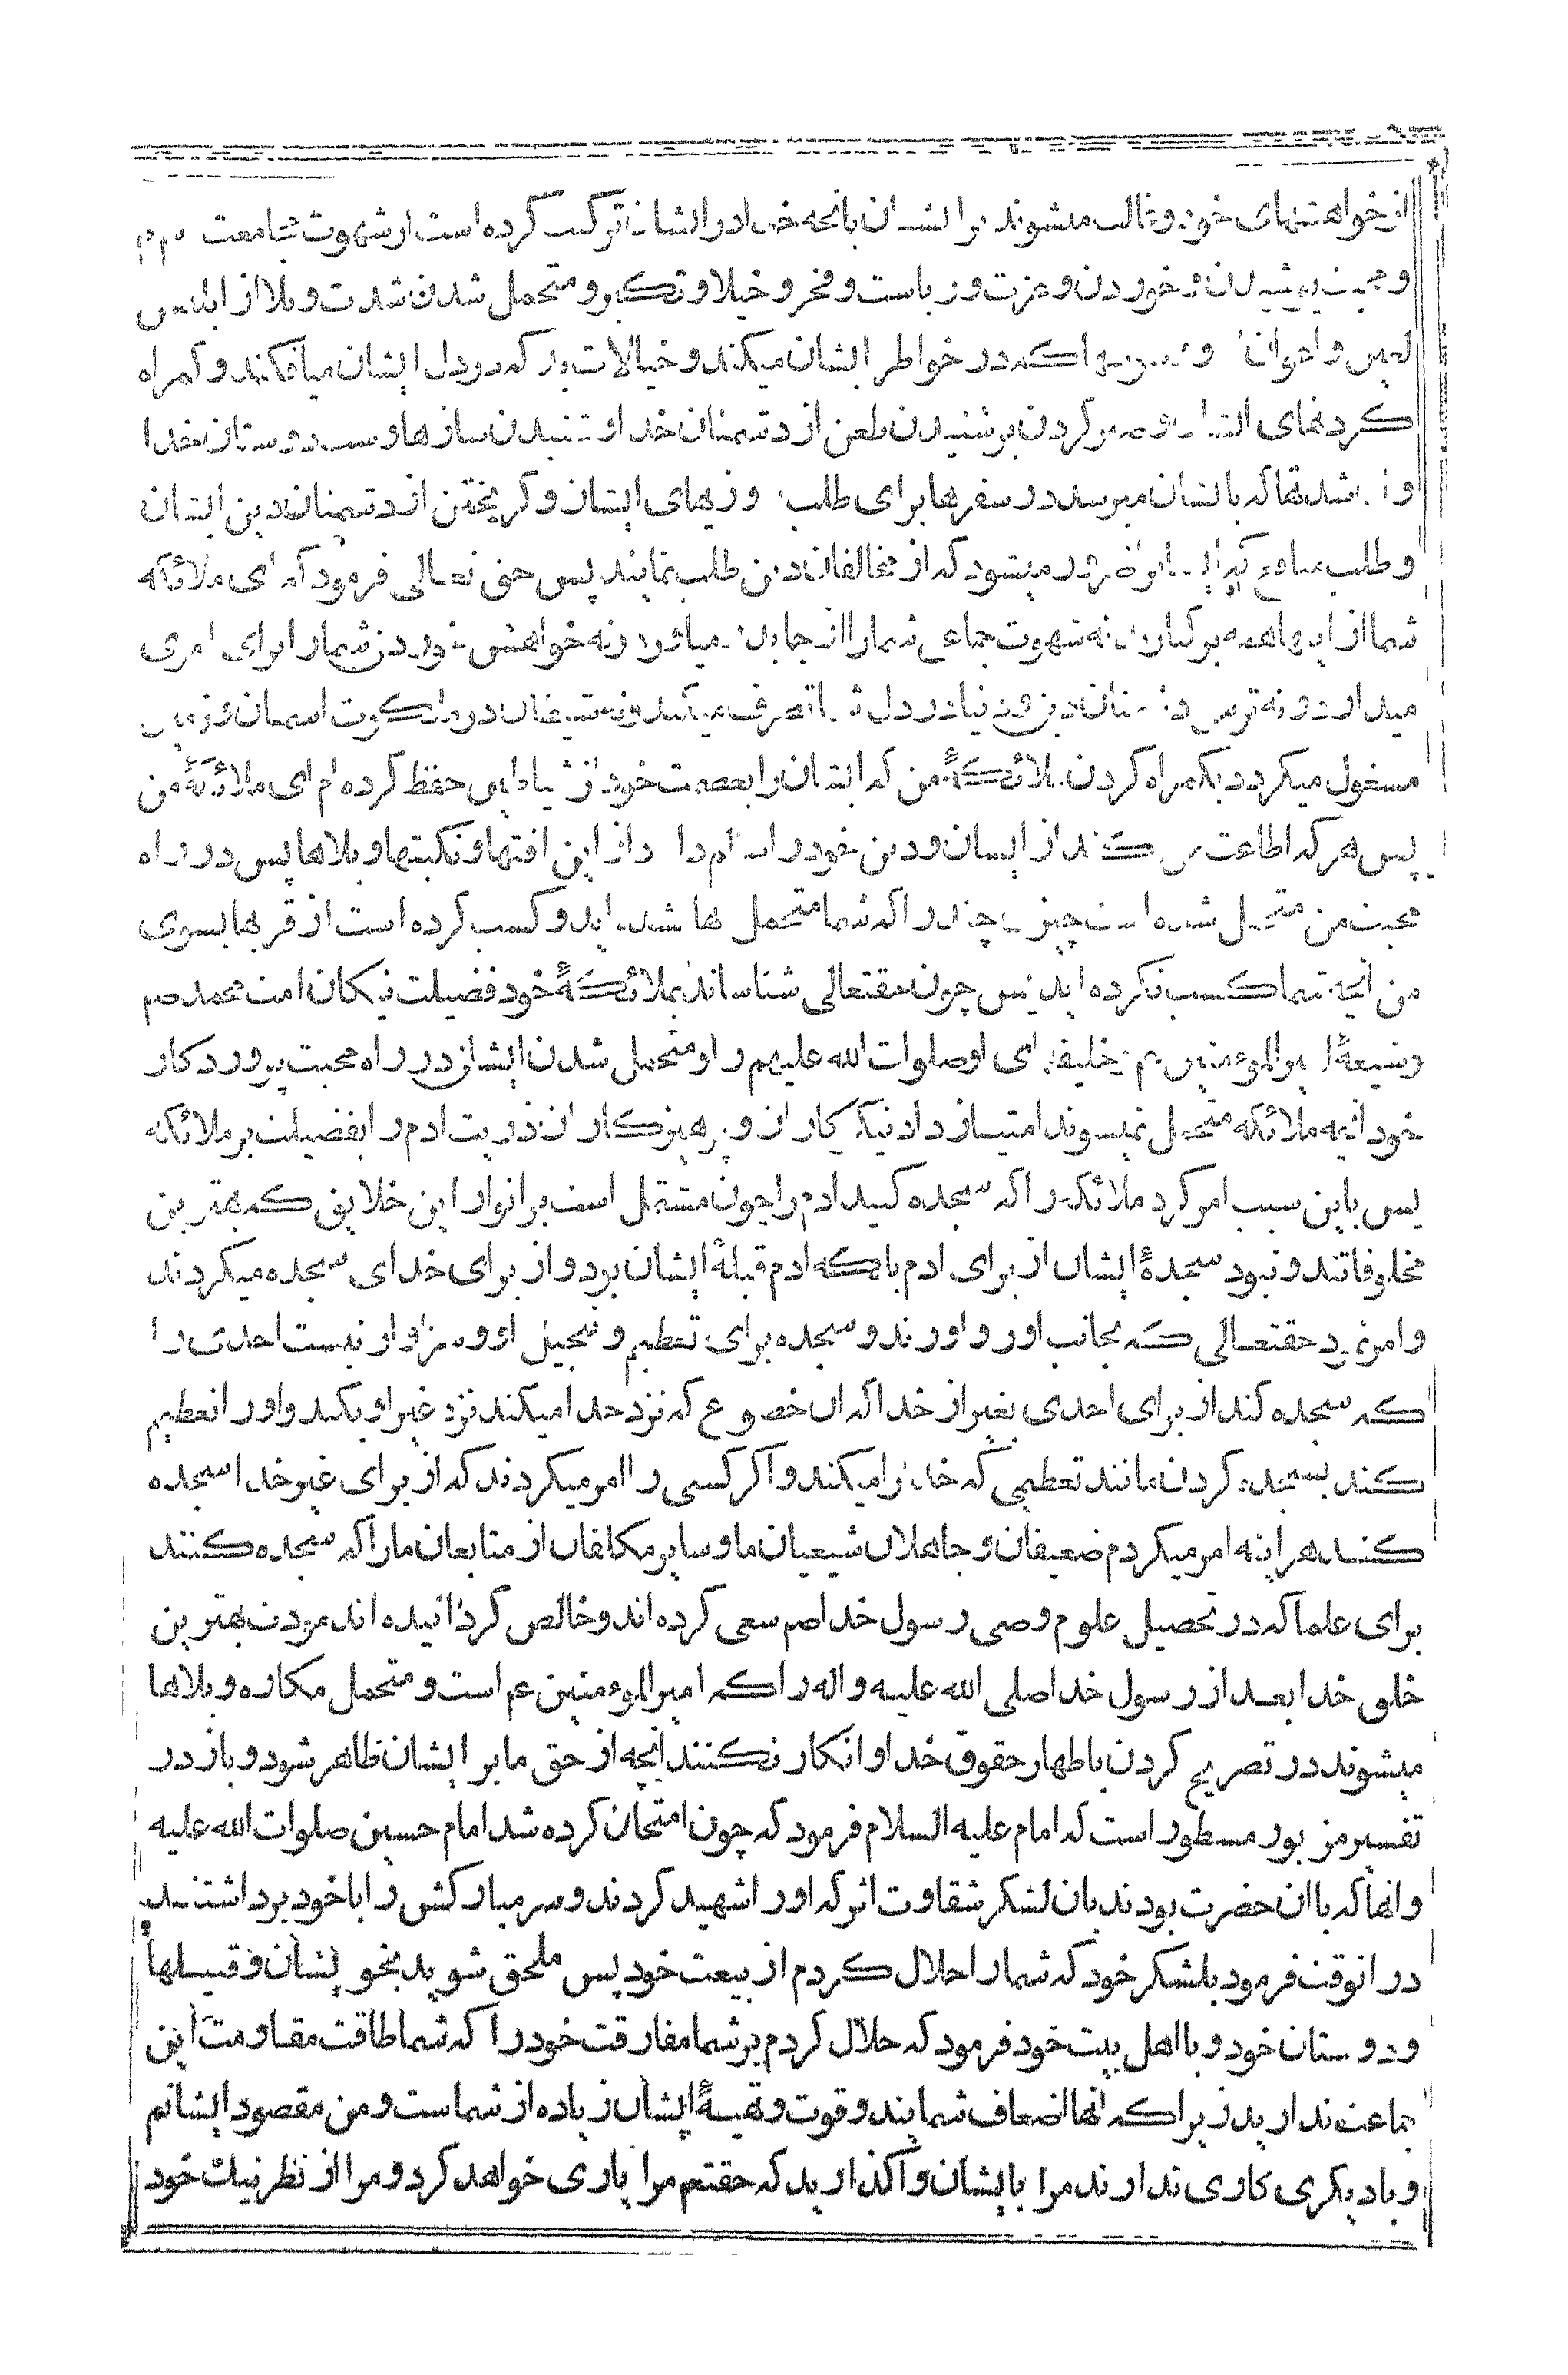 از خواهشهای خود و غالب میشوند بر ایشان بانچه خدا در ایشان ترکیب کرده است از شهوت مجامعت
و پوشیدن و خوردن و عزت و ریاست و فخر و خیلا و تکبر و متحمل شدن شدت و بلا از ابلیس
لعین و اعوان و که در خواطر ایشان میکند و خیالات بد که در دل ایشان میافکند و کمراه
کردنهای و صبر کردن بر شنیدن طعن از دشمنان خدا و شنیدن سازها و سب دوستان خدا
و شدتها که بایشان میرسد در سفرها برای طلب روزیهای ایشان و کریختن از دشمنان دین ایشان
و طلب میشود که از مخالفان دین طلب نمایند پس حق تعالی فرمود که ای ملائکه
شما از اینها همه بر کنارید نه شهوت جماع شما را از جا بدر میاورد و نه خواهش خوردن شما را برای امری
میدارد و نه ترس دشمنان دین و دنیا در دل شما تصرف میکند و نه شیطان در ملکوت اسمان و زمین
مشغول میکردد بکمراه کردن ملائکهٔ من که ایشان را بعصمت خود از شیاطین حفظ کرده ام ای ملائکهٔ من
پس هر که اطاعت من کند از ایشان و دین خود را سالم دارد از این افتها و نکبتها و بلاها پس در راه
محبت من متحمل شده است چیزی چند را که شما متحمل انها نشده اید و کسب کرده است از قربها بسوی
من انچه شما کسب نکرده اید پس چون حقتعالی شناساند بملائکهٔ خود فضیلت نیکان امت محمد صم
و شیعهٔ امیرالموءمنین عم و خلیفهای او صلوات الله علیهم را و متحمل شدن ایشان در راه محبت پروردکار
خود انچه ملائکه متحمل نمیشوند امتیاز داد نیکوکاران و پرهیزکاران ذریت ادم را بفضیلت بر ملائکه
پس باین سبب امر کرد ملائکه را که سجده کنید ادم را چون مشتمل است بر انوار این خلایق که بهترین
مخلوقاتند و نبود سجدهٔ ایشان از برای ادم بلکه ادم قبلهٔ ایشان بود و از برای خدای سجده میکردند
و امر نمود حقتعالی که بجانب او رو اورند و سجده برای تعظیم و تبجیل او و سزاوار نیست احدی را
که سجده کند از برای احدی بغیر از خدا که ان خضوع که نزد خدا میکند نزد غیر او بکند و او را تعظیم
کند بسجده کردن مانند تعظیمی که خدا را میکند و اکر کسی را امر میکردند که از برای غیر خدا سجده
کند هراینه امر میکردم ضعیفان و جاهلان شیعیان ما و سایر مکلفان از متابعان ما را که سجده کنند
برای علما که در تحصیل علوم وصی رسول خدا صم سعی کرده اند و خالص کردانیده اند مودت بهترین
خلق خدا بعد از رسول خدا صلی الله علیه و اله را که امیرالموءمنین عم است و متحمل مکاره و بلاها
میشوند در تصریح کردن باظهار حقوق خدا و انکار نکنند انچه از حق ما بر ایشان ظاهر شود و باز در
تفسیر مزبور مسطور است که امام علیه السلام فرمود که چون امتحان کرده شد امام حسین صلوات الله علیه
و انها که با ان حضرت بودند بان لشکر شقاوت اثر که او را شهید کردند و سر مبارکش را با خود برداشتند
در انوقت فرمود بلشکر خود که شما را حلال کردم از بیعت خود پس ملحق شوید بخویشان و قبیلها
و دوستان خود و با اهل بیت خود فرمود که حلال کردم بر شما مفارقت خود را که شما طاقت مقاومت این
جماعت ندارید زیرا که انها اضعاف شمایند و قوت و تهیهٔ ایشان زیاده از شماست و من مقصود ایشانم
و با دیکری کاری ندارند مرا بایشان واکذارید که حقتعم مرا یاری خواهد کرد و مرا از نظر نیك خود